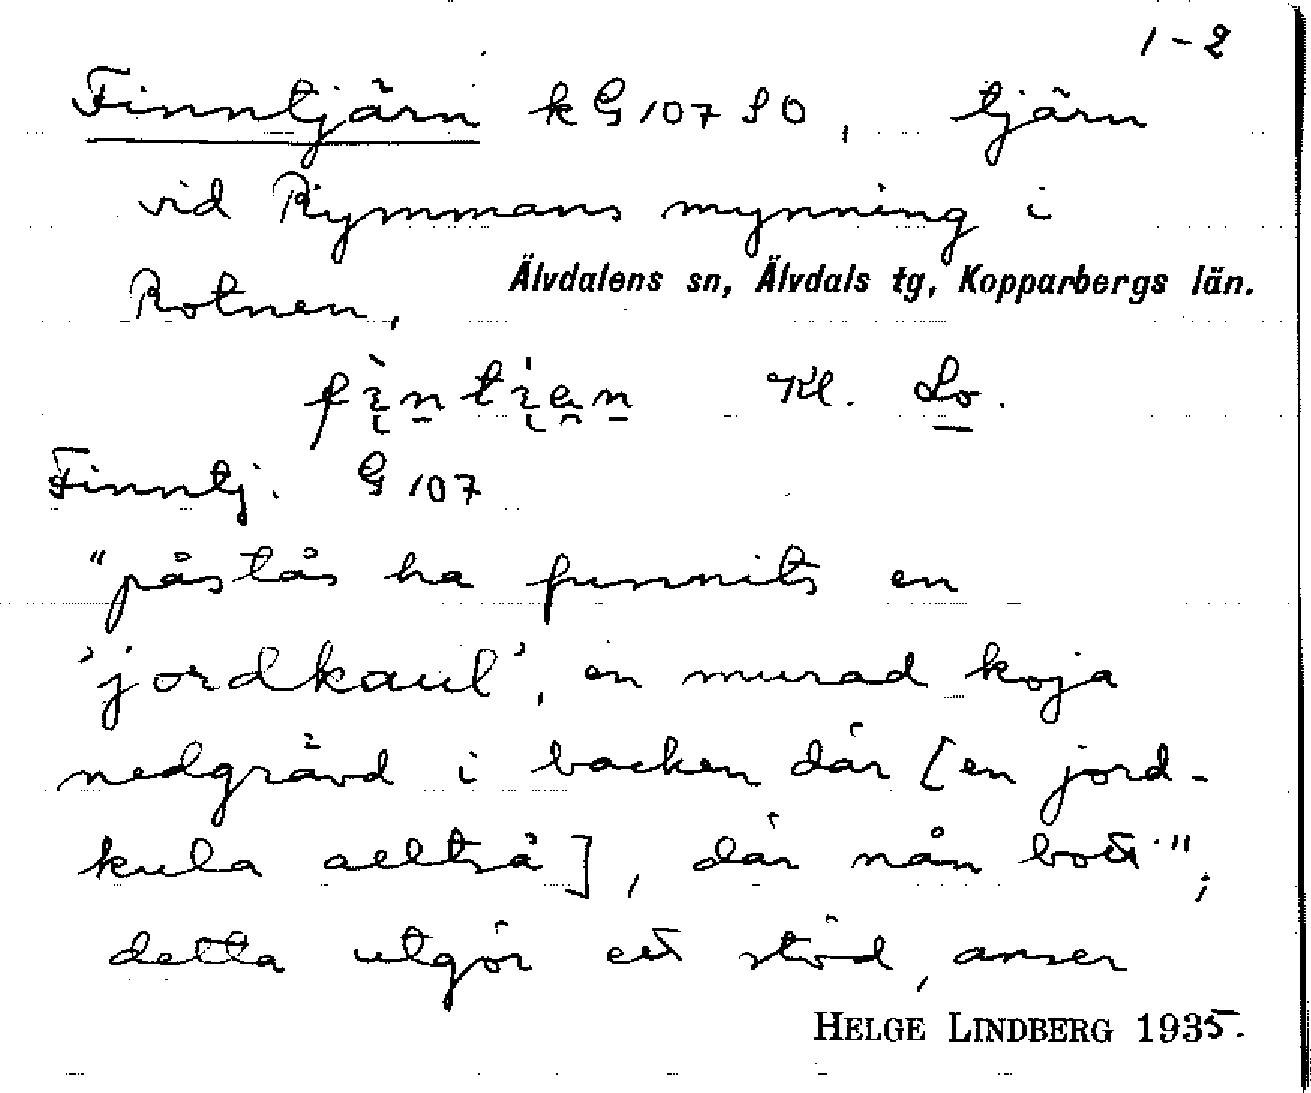 1-2
Finntjärn k G 107 SO, tjärn
vid Rymmans mynning i
Rotnen,
Älvdalens sn, Älvdals tg, Kopparbergs län.
Kl. Lo.
Finntj. G 107
"påstås ha funnits en
'jordkaul', en murad koja
nedgrävd i backen där [en jord-
kula alltså], där nån bott";
detta utgör ett stöd, anser
HELGE LINDBERG 1935.